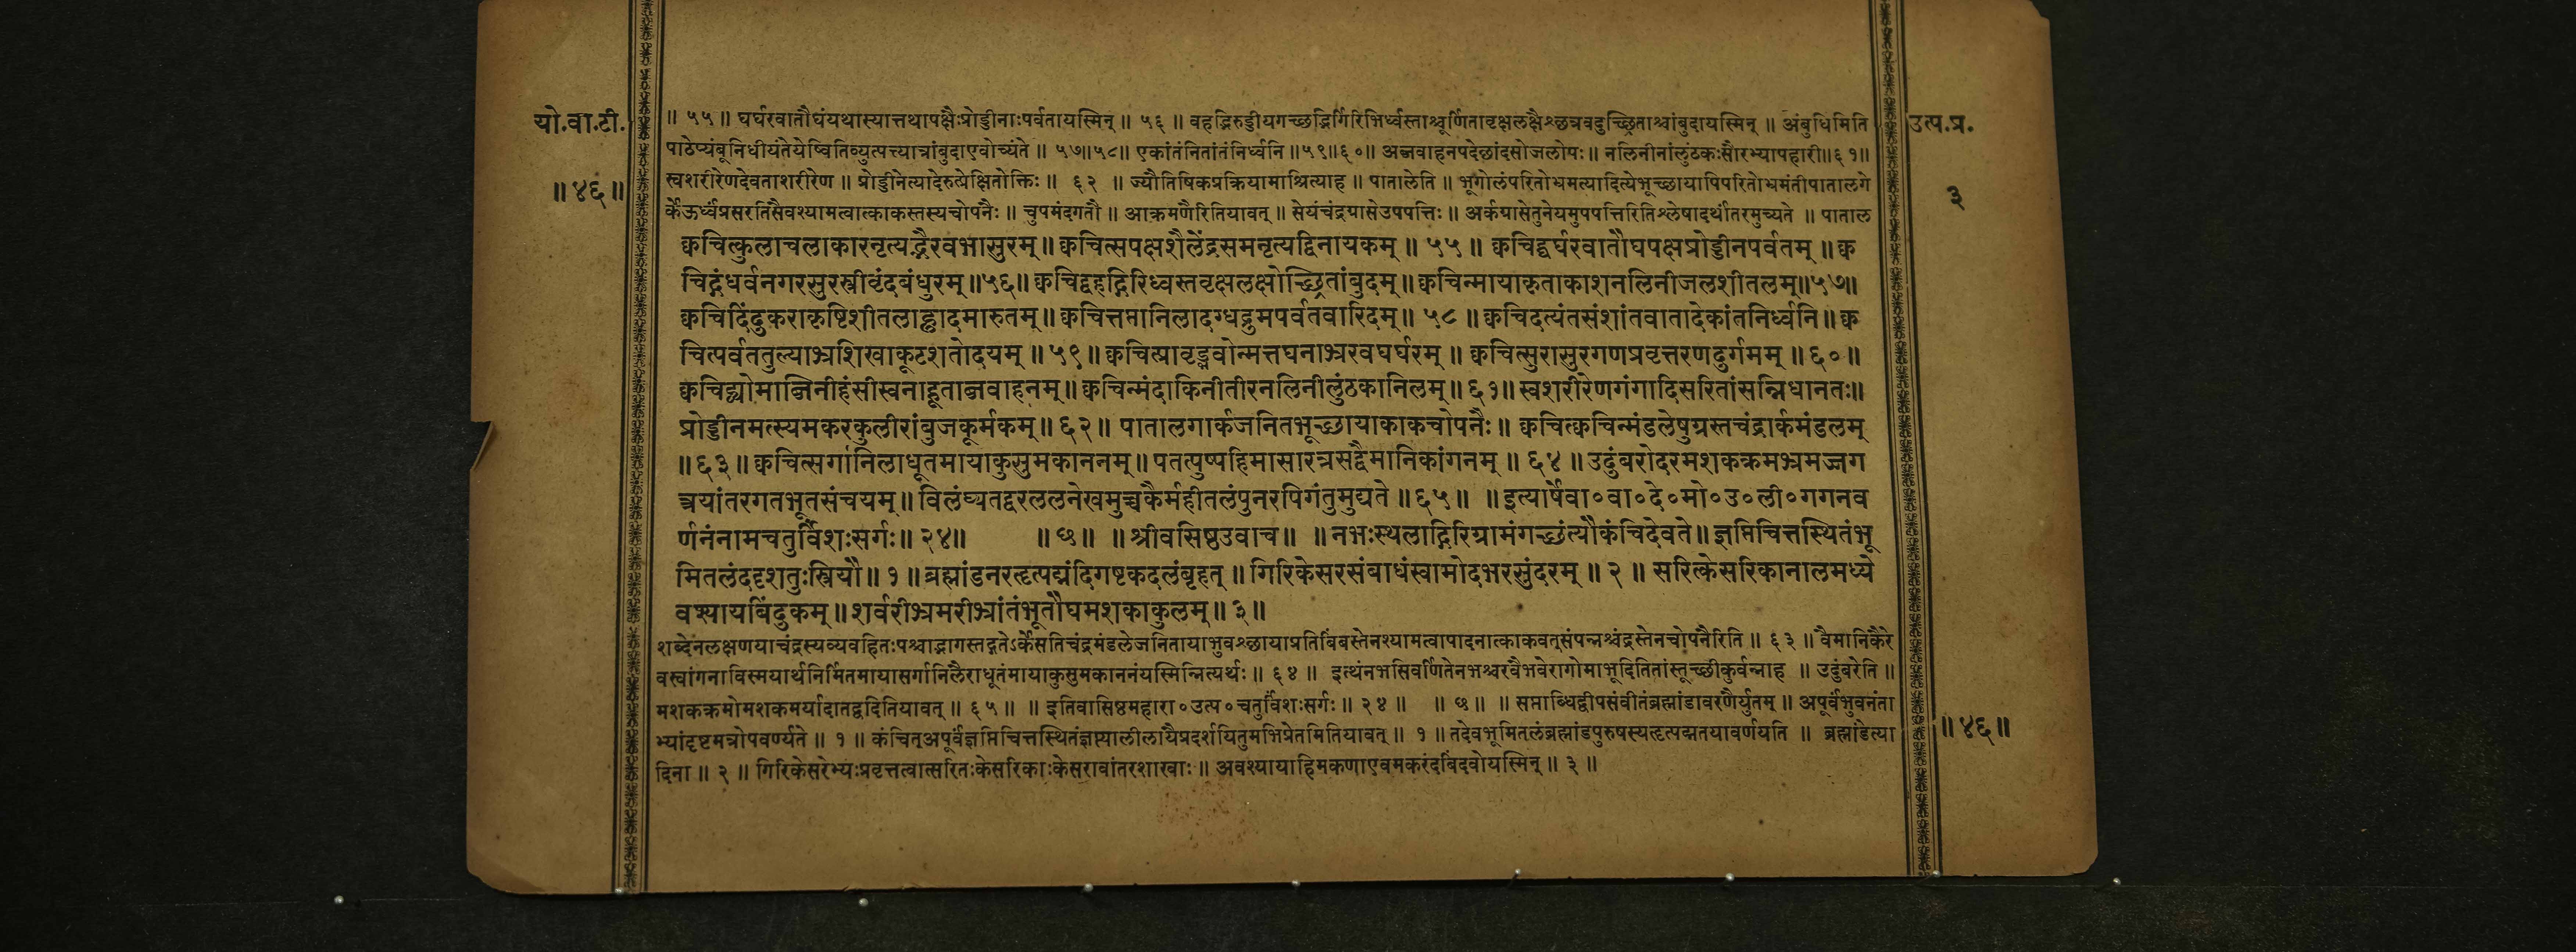 यो.वा.टी.
॥ ४६ ॥
उत्प.प्र.
३
॥ ५५ ॥ घर्घरवातौघंयथास्यात्तथापक्षैःप्रोड्डीनाःपर्वतायस्मिन् ॥ ५६ ॥ वहद्भिरुड्डीयगच्छद्भिर्गिरिभिर्ध्वस्ताश्चूर्णितावृक्षलक्षैश्छत्रवदुच्छ्रिताश्चांबुदायस्मिन् ॥ अंबुधिमिति
पाठेप्यंबूनिधीयंतेयेष्वितिव्युत्पत्त्यात्रांबुदाएवोच्यंते ॥ ५७॥५८॥ एकांतंनितांतंनिर्ध्वनि ॥५९॥६०॥ अब्जवाहनपदेछांदसोजलोपः ॥ नलिनीनांलुंठकःसौरभ्यापहारी॥६१॥
स्वशरीरेणदेवताशरीरेण ॥ प्रोड्डीनेत्यादेरुत्प्रेक्षितोक्तिः ॥ ६२ ॥ ज्यौतिषिकप्रक्रियामाश्रित्याह ॥ पातालेति ॥ भूगोलंपरितोभ्रमत्यादित्येभूच्छायापिपरितोभ्रमंतीपातालगे
र्केऊर्ध्वंप्रसरतिसैवश्यामत्वात्काकस्तस्यचोपनैः ॥ चुपमंदगतौ ॥ आक्रमणैरितियावत् ॥ सेयंचंद्रग्रासेउपपत्तिः ॥ अर्कग्रासेतुनेयमुपपत्तिरितिश्लेषादर्थांतरमुच्यते ॥ पाताल
क्वचित्कुलाचलाकारनृत्यद्भैरवभासुरम् ॥ क्वचित्सपक्षशैलेंद्रसमनृत्यद्विनायकम् ॥ ५५ ॥ क्वचिद्घर्घरवातौघपक्षप्रोड्डीनपर्वतम् ॥ क्व
चिद्गंधर्वनगरसुरस्त्रीवृंदबंधुरम् ॥५६॥ क्वचिद्वहद्गिरिध्वस्तवृक्षलक्षोच्छ्रितांबुदम् ॥ क्वचिन्मायाकृताकाशनलिनीजलशीतलम्॥५७॥
क्वचिदिंदुकराकृष्टिशीतलाह्लादमारुतम् ॥ क्वचित्तप्तानिलादग्धद्रुमपर्वतवारिदम् ॥ ५८ ॥ क्वचिदत्यंतसंशांतवातादेकांतनिर्ध्वनि ॥ क्व
चित्पर्वततुल्याभ्रशिखाकूटशतोदयम् ॥ ५९ ॥ क्वचित्प्रावृड्भवोन्मत्तघनाभ्ररवघर्घरम् ॥ क्वचित्सुरासुरगणप्रवृत्तरणदुर्गमम् ॥ ६० ॥
क्वचिद्व्योमाब्जिनीहंसीस्वनाहूताब्जवाहनम् ॥ क्वचिन्मंदाकिनीतीरनलिनीलुंठकानिलम् ॥ ६१ ॥ स्वशरीरेणगंगादिसरितांसन्निधानतः॥
प्रोड्डीनमत्स्यमकरकुलीरांबुजकूर्मकम् ॥ ६२ ॥ पातालगार्कजनितभूच्छायाकाकचोपनैः ॥ क्वचित्क्वचिन्मंडलेषुग्रस्तचंद्रार्कमंडलम्
॥ ६३ ॥ क्वचित्सर्गानिलाधूतमायाकुसुमकाननम् ॥ पतत्पुष्पहिमासारत्रसद्वैमानिकांगनम् ॥ ६४ ॥ उदुंबरोदरमशकक्रमभ्रमज्जग
त्त्रयांतरगतभूतसंचयम् ॥ विलंघ्यतद्वरललनेखमुच्चकैर्महीतलंपुनरपिगंतुमुद्यते ॥ ६५ ॥ ॥ इत्यार्षेवा०वा०दे०मो०उ०ली०गगनव
र्णनंनामचतुर्विंशःसर्गः॥ २४॥ ॥ छ ॥ ॥ श्रीवसिष्ठउवाच ॥ ॥ नभःस्थलाद्गिरिग्रामंगच्छंत्यौकंचिदेवते॥ ज्ञप्तिचित्तस्थितंभू
मितलंददृशतुःस्त्रियौ॥ १ ॥ ब्रह्मांडनरहृत्पद्मंदिगष्टकदलंबृहत् ॥ गिरिकेसरसंबाधंस्वामोदभरसुंदरम् ॥ २ ॥ सरित्केसरिकानालमध्ये
वश्यायबिंदुकम् ॥ शर्वरीभ्रमरीभ्रांतंभूतौघमशकाकुलम् ॥ ३ ॥
शब्देनलक्षणयाचंद्रस्यव्यवहितःपश्चाद्भागस्तद्गतेऽर्केसतिचंद्रमंडलेजनितायाभुवश्छायाप्रतिबिंबस्तेनश्यामत्वापादनात्काकवत्संपन्नश्चंद्रस्तेनचोपनैरिति ॥ ६३ ॥ वैमानिकैरे
वस्वांगनाविस्मयार्थनिर्मितमायासर्गानिलैराधूतंमायाकुसुमकाननंयस्मिन्नित्यर्थः ॥ ६४ ॥ इत्थंनभसिवर्णितेनभश्चरवैभवेरागोमाभूदितितांस्तूच्छीकुर्वन्नाह ॥ उदुंबरेति ॥
मशकक्रमोमशकमर्यादातद्वदितियावत् ॥ ६५ ॥ ॥ इतिवासिष्ठमहारा०उत्प०चतुर्विंशःसर्गः ॥ २४ ॥ ॥ छ ॥ ॥ सप्ताब्धिद्वीपसंवीतंब्रह्मांडावरणैर्युतम् ॥ अपूर्वंभुवनंता
भ्यांदृष्टमत्रोपवर्ण्यते ॥ १ ॥ कंचित्अपूर्वंज्ञप्तिचित्तस्थितंज्ञप्त्यालीलायैप्रदर्शयितुमभिप्रेतमितियावत् ॥ १ ॥ तदेवभूमितलंब्रह्मांडपुरुषस्यहृत्पद्मतयावर्णयति ॥ ब्रह्मांडेत्या
दिना ॥ २ ॥ गिरिकेसरेभ्यःप्रवृत्तत्वात्सरितःकेसरिकाःकेसरावांतरशाखाः ॥ अवश्यायाहिमकणाएवमकरंदबिंदवोयस्मिन् ॥ ३ ॥
॥ ४६ ॥